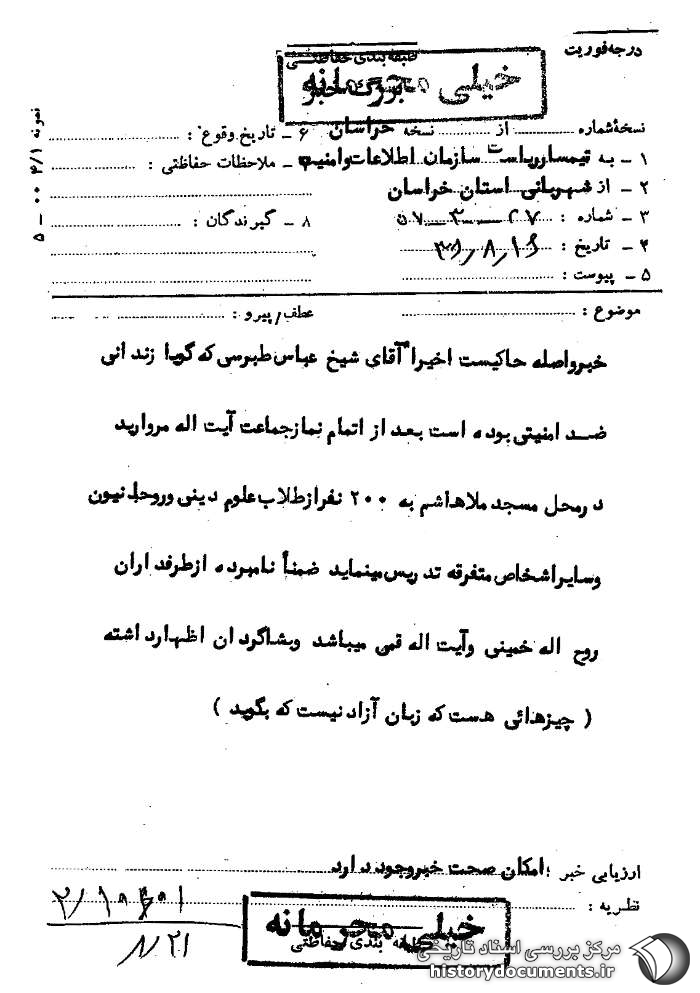 درجه فوریت
طبقه بندی حفاظتی
خیلی محرمانه
برگ خبر
نسخهٔ شماره ........ از ........ نسخه خراسان
۶ ـ تاریخ وقوع :
۱ ـ به تیمسار ریاست سازمان اطلاعات و امنیت
ـ ملاحظات حفاظتی :
۲ ـ از شهربانی استان خراسان
۳ ـ شماره : ۲۷ ـ ۳ ـ ۵۷
۸ ـ گیرندگان :
۴ ـ تاریخ :
۵ ـ پیوست :
نمونه ۴/۱ ۰۰ ـ ۵
موضوع :
عطف/پیرو :
خبر واصله حاکیست اخیراً آقای شیخ عباس طبرسی که گویا زندانی
ضد امنیتی بوده است بعد از اتمام نماز جماعت آیت اله مروارید
در محل مسجد ملاهاشم به ۲۰۰ نفر از طلاب علوم دینی و روحانیون
و سایر اشخاص متفرقه تدریس مینماید ضمناً نامبرده از طرفداران
روح اله خمینی و آیت اله قمی میباشد و بشاگردان اظهار داشته
( چیزهائی هست که زبان آزاد نیست که بگوید )
ارزیابی خبر : امکان صحت خبر وجود دارد
نظریه :
خیلی محرمانه
طبقه بندی حفاظتی
مرکز بررسی اسناد تاریخی
historydocuments.ir